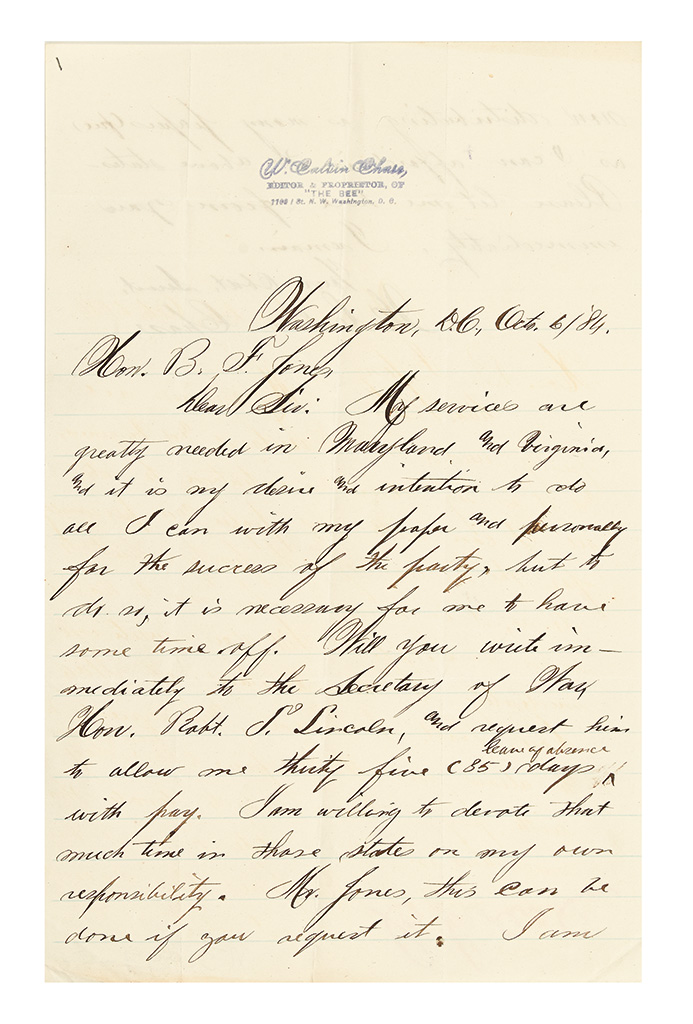 W. Calvin Chase,
EDITOR & PROPRIETOR, OF
"THE BEE"
1109 I St. N. W. Washington, D. C.
Washington, D.C., Oct. 6/84.
Hon. B. F. Jones,
Dear Sir: My services are
greatly needed in Maryland and Virginia,
and it is my desire and intention to do
all I can with my paper and personally
for the success of the party, but to
do so, it is necessary for me to have
some time off. Will you write im-
mediately to the Secretary of War,
Hon. Robt. T. Lincoln, and request him
leave of absence
to allow me thirty five (35) days
with pay. I am willing to devote that
much time in those states on my own
responsibility. Mr. Jones, this can be
done if you request it. I am